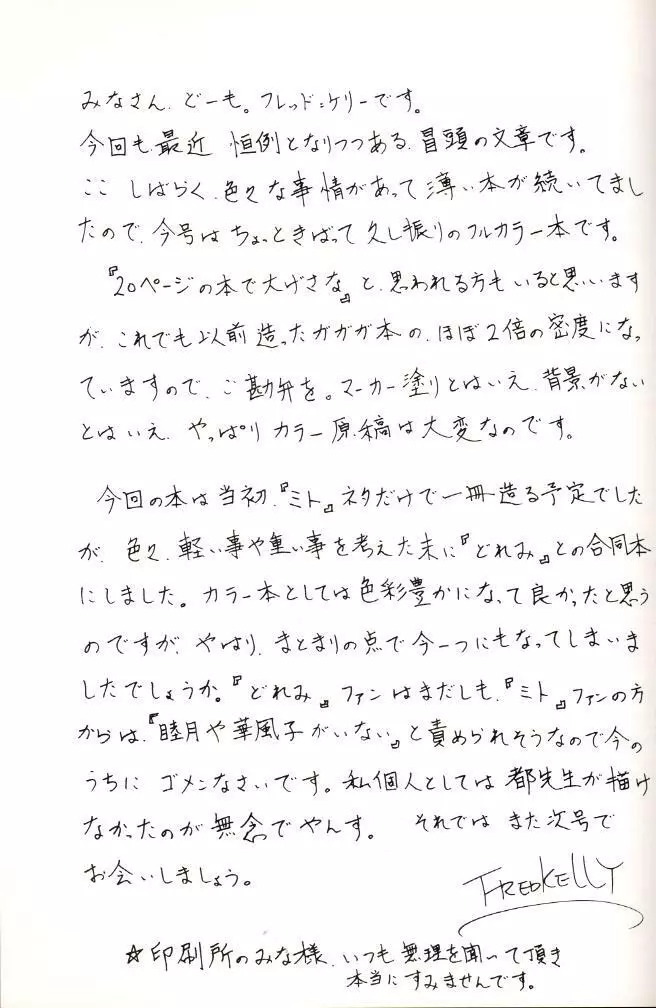 みなさん、どーも。フレッド=ケリーです。
今回も、最近 恒例となりつつある、冒頭の文章です。
ここ しばらく、色々な事情があって 薄い本が続いてまし
たので、今号は ちょっときばって 久し振りのフルカラー本です。
『20ページの本で大げさな』と、思われる方もいると思います
が、これでも以前造ったガガガ本の、ほぼ2倍の密度になっ
ていますので、ご勘弁を。マーカー塗りとはいえ、背景がない
とはいえ、やっぱり カラー原稿は大変なのです。
今回の本は当初、『ミト』ネタだけで一冊造る予定でした
が、色々、軽い事や重い事を考えた末に『どれみ』との合同本
にしました。カラー本としては色彩豊かになって良かったと思う
のですが、やはり、まとまりの点で今一つにもなってしまいま
したでしょうか。『どれみ』ファンはまだしも、『ミト』ファンの方
からは、『睦月や華風子がいない』と責められそうなので今の
うちに ゴメンなさいです。私個人としては 都先生が描け
なかったのが 無念でやんす。 それでは また次号で
お会いしましょう。
FREDKELLY
☆印刷所のみな様、いつも無理を聞いて頂き
本当にすみませんです。